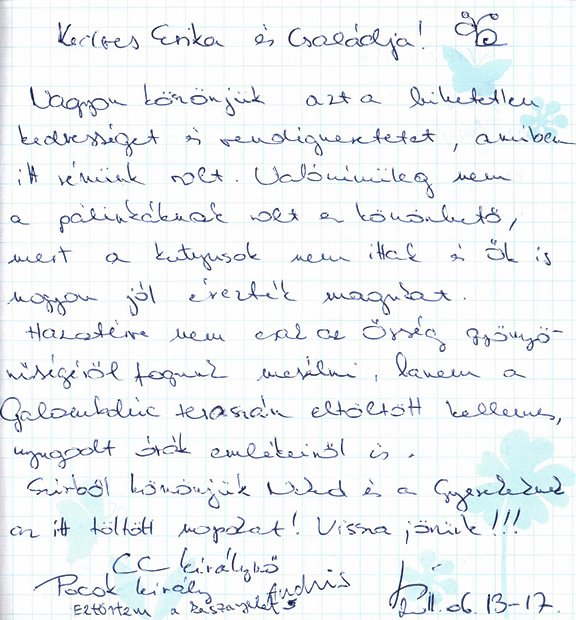 Kedves Erika és Családja!
Nagyon könönjük azt a hihetetlen
kedvességet és vendégszeretetet, amiben
itt részünk volt. Valószínűleg nem
a pálinkáknak volt ez könönhető,
mert a kutyusok nem ittak és Ők is
nagyon jól érezték magukat.
Hazatérve nem csak az Őrség gyönyö-
rűségéről fogunk mesélni, hanem a
Galambdúc teraszán eltöltött kellemes,
nyugodt órák emlékeiről is.
Szívből könönjük Neked és a Gyerekeknek
az itt töltött napokat! Vissza jövünk!!!
CC királynő
Pocok király András
Eltörtem a
06.13-17.